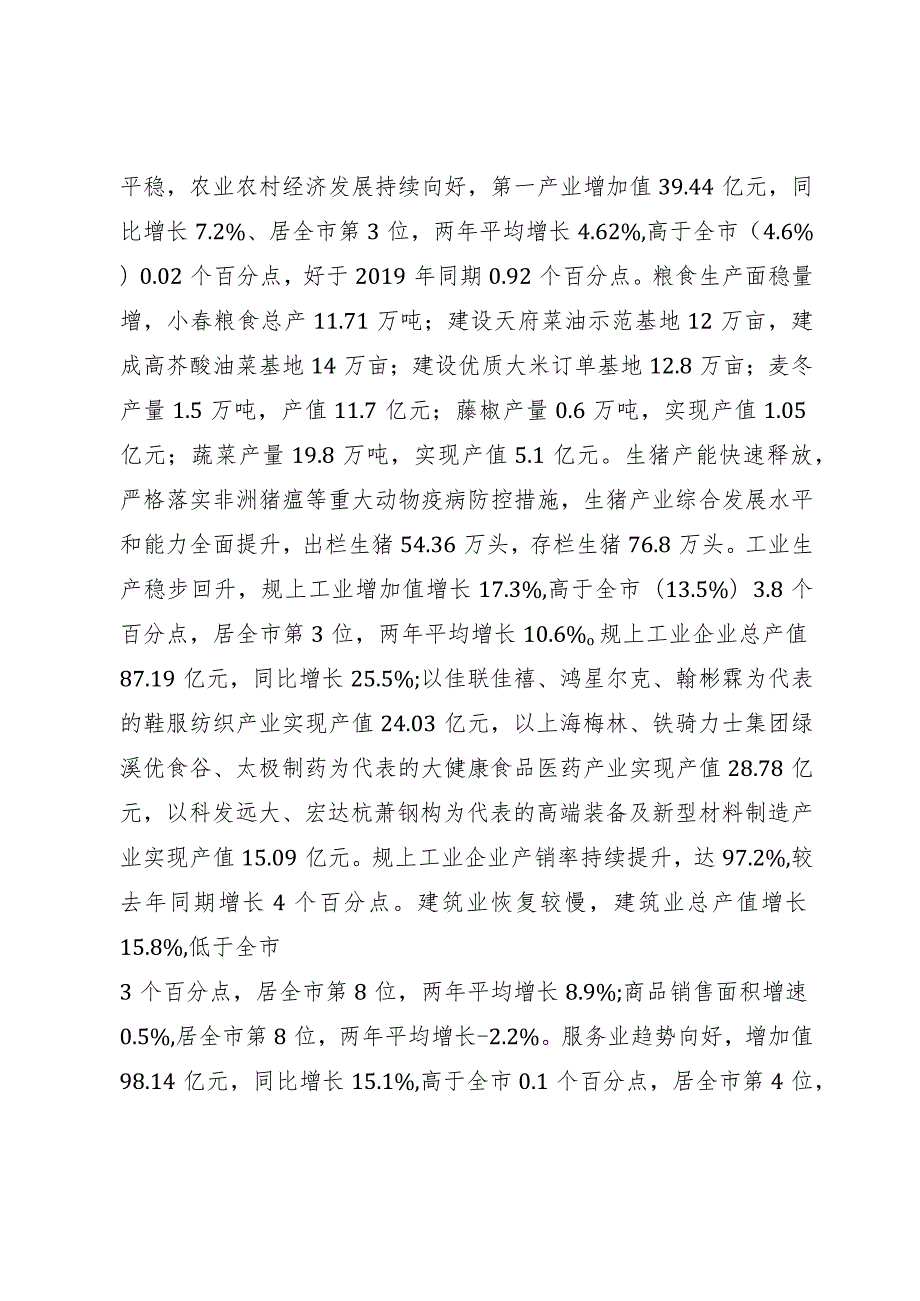 平稳，农业农村经济发展持续向好，第一产业增加值 39.44 亿元，同
比增长 7.2%、居全市第 3 位，两年平均增长 4.62%,高于全市（4.6%
）0.02 个百分点，好于 2019 年同期 0.92 个百分点。粮食生产面稳量
增，小春粮食总产 11.71 万吨；建设天府菜油示范基地 12 万亩，建
成高芥酸油菜基地 14 万亩；建设优质大米订单基地 12.8 万亩；麦冬
产量 1.5 万吨，产值 11.7 亿元；藤椒产量 0.6 万吨，实现产值 1.05
亿元；蔬菜产量 19.8 万吨，实现产值 5.1 亿元。生猪产能快速释放，
严格落实非洲猪瘟等重大动物疫病防控措施，生猪产业综合发展水平
和能力全面提升，出栏生猪 54.36 万头，存栏生猪 76.8 万头。工业生
产稳步回升，规上工业增加值增长 17.3%,高于全市（13.5%）3.8 个
百分点，居全市第 3 位，两年平均增长 10.6%o 规上工业企业总产值
87.19 亿元，同比增长 25.5%;以佳联佳禧、鸿星尔克、翰彬霖为代表
的鞋服纺织产业实现产值 24.03 亿元，以上海梅林、铁骑力士集团绿
溪优食谷、太极制药为代表的大健康食品医药产业实现产值 28.78 亿
元，以科发远大、宏达杭萧钢构为代表的高端装备及新型材料制造产
业实现产值 15.09 亿元。规上工业企业产销率持续提升，达 97.2%,较
去年同期增长 4 个百分点。建筑业恢复较慢，建筑业总产值增长
15.8%,低于全市
3 个百分点，居全市第 8 位，两年平均增长 8.9%;商品销售面积增速
0.5%,居全市第 8 位，两年平均增长-2.2%。服务业趋势向好，增加值
98.14 亿元，同比增长 15.1%,高于全市 0.1 个百分点，居全市第 4 位，